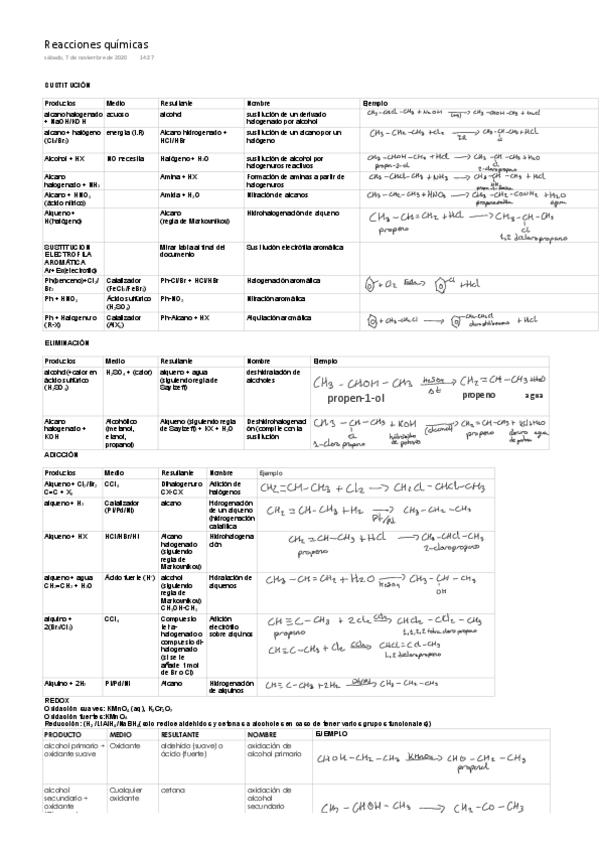 Reacciones químicas
sábado, 7 de noviembre de 2020 14:27
SUSTITUCIÓN
Productos Medio Resultante Nombre Ejemplo
alcano halogenado + NaOH/KOH acuoso alcohol sustitución de un derivado halogenado por alcohol
alcano + halógeno (Cl₂/Br₂) energía (I.R) Alcano hidrogenado + HCl/HBr sustitución de un alcano por un halógeno
Alcohol + HX NO necesita Halógeno + H₂O sustitución de alcohol por halogenuros reactivos
Alcano halogenado + NH₃ Amina + HX Formación de aminas a partir de halogenuros
Alcano + HNO₃ (ácido nítrico) Amida + H₂O Nitración de alcanos
Alqueno + H(halógeno) Alcano (regla de Markounikou) Hidrohalogenación de alqueno CH₃-CH=CH₂ + HCl → CH₃-CH-CH₃
propeno Cl
1,2 dicloropropeno
SUSTITUCION ELECTROFILA AROMÁTICA Mirar tabla al final del documento Sustitución electrófila aromática
Ph(benceno)+Cl₂/Br₂ Catalizador (FeCl₃/FeBr₃) Ph-Cl/Br + HCl/HBr Halogenación aromática
Ph + HNO₃ Ácido sulfúrico (H₂SO₄) Ph-NO₂ Nitración aromática
Ph + Halogenuro (R-X) Catalizador (AlX₃) Ph-Alcano + HX Alquilación aromática
ELIMINACIÓN
Productos Medio Resultante Nombre Ejemplo
alcohol+calor en ácido sulfúrico (H₂SO₄) H₂SO₄ + (calor) alqueno + agua (siguiendo regla de Saytzeff) deshidratación de alcoholes CH₃ - CHOH - CH₃ H₂SO₄ Δt → CH₂ = CH - CH₃ + H₂O
propen-1-ol propeno agua
Alcano halogenado + KOH Alcohólico (metanol, etanol, propanol) Alqueno (siguiendo regla de Sayzeff) + KX + H₂O Deshidrohalogenación (compite con la sustitución CH₃ - CH-CH₃ + KOH
Cl
ADICCIÓN
Productos Medio Resultante Nombre Ejemplo
Alqueno + Cl₂/Br₂ C=C + X₂ CCl₄ Dihalogenuro CX-CX Adición de halógenos CH₂=CH-CH₃ + Cl₂ → CH₂Cl - CHCl-CH₃
alqueno + H₂ Catalizador (Pt/Pd/Ni) alcano Hidrogenación de un alqueno (hidrogenación catalítica CH₂ = CH-CH₃ + H₂ → CH₃-CH₂-CH₃
Alqueno + HX HCl/HBr/HI Alcano halogenado (siguiendo regla de Markounikou) Hidrohalogenación CH₂ = CH-CH₃ + HCl → CH₃-CHCl-CH₃
propeno 2-cloropropeno
alqueno + agua CH₂=CH₂ + H₂O Ácido fuerte (H⁺) alcohol (siguiendo regla de Markounikou) CH₂OH-CH₃ Hidratación de alquenos CH₃-CH=CH₂ + H₂O H₂SO₄ → CH₃-CH-CH₃
OH
alquino + 2(Br₂/Cl₂) CCl₄ Compuesto tetra-halogenado o compuesto di-halogenado (si se le añade 1 mol de Br o Cl) Adición electrófila sobre alquinos CH≡C-CH₃ + 2Cl₂ CCl₄ → CHCl₂ - CCl₂ - CH₃
propino
CH≡C-CH₃ + Cl₂ CCl₄ → CHCl=CCl-CH₃
Alquino + 2H₂ Pt/Pd/Ni Alcano Hidrogenación de alquinos CH≡C-CH₃ + 2H₂ → CH₃-CH₂-CH₃
REDOX
Oxidación suaves: KMnO₄ (aq), K₂Cr₂O₇
Oxidación fuertes: KMnO₄
Reducción: (H₂/LiAlH₄/NaBH₄(solo redice aldehídos y cetonas a alcoholes en caso de tener varios grupos funcionales))
PRODUCTO MEDIO RESULTANTE NOMBRE EJEMPLO
alcohol primario + oxidante suave Oxidante aldehído (suave) o ácido (fuerte) oxidación de alcohol primario CHOH-CH₂-CH₃ KMnO₄ → CHO - CH₂ - CH₃
propanal
alcohol secundario + oxidante Cualquier oxidante cetona oxidación de alcohol secundario CH₃ - CHOH - CH₃ → CH₃ - CO - CH₃